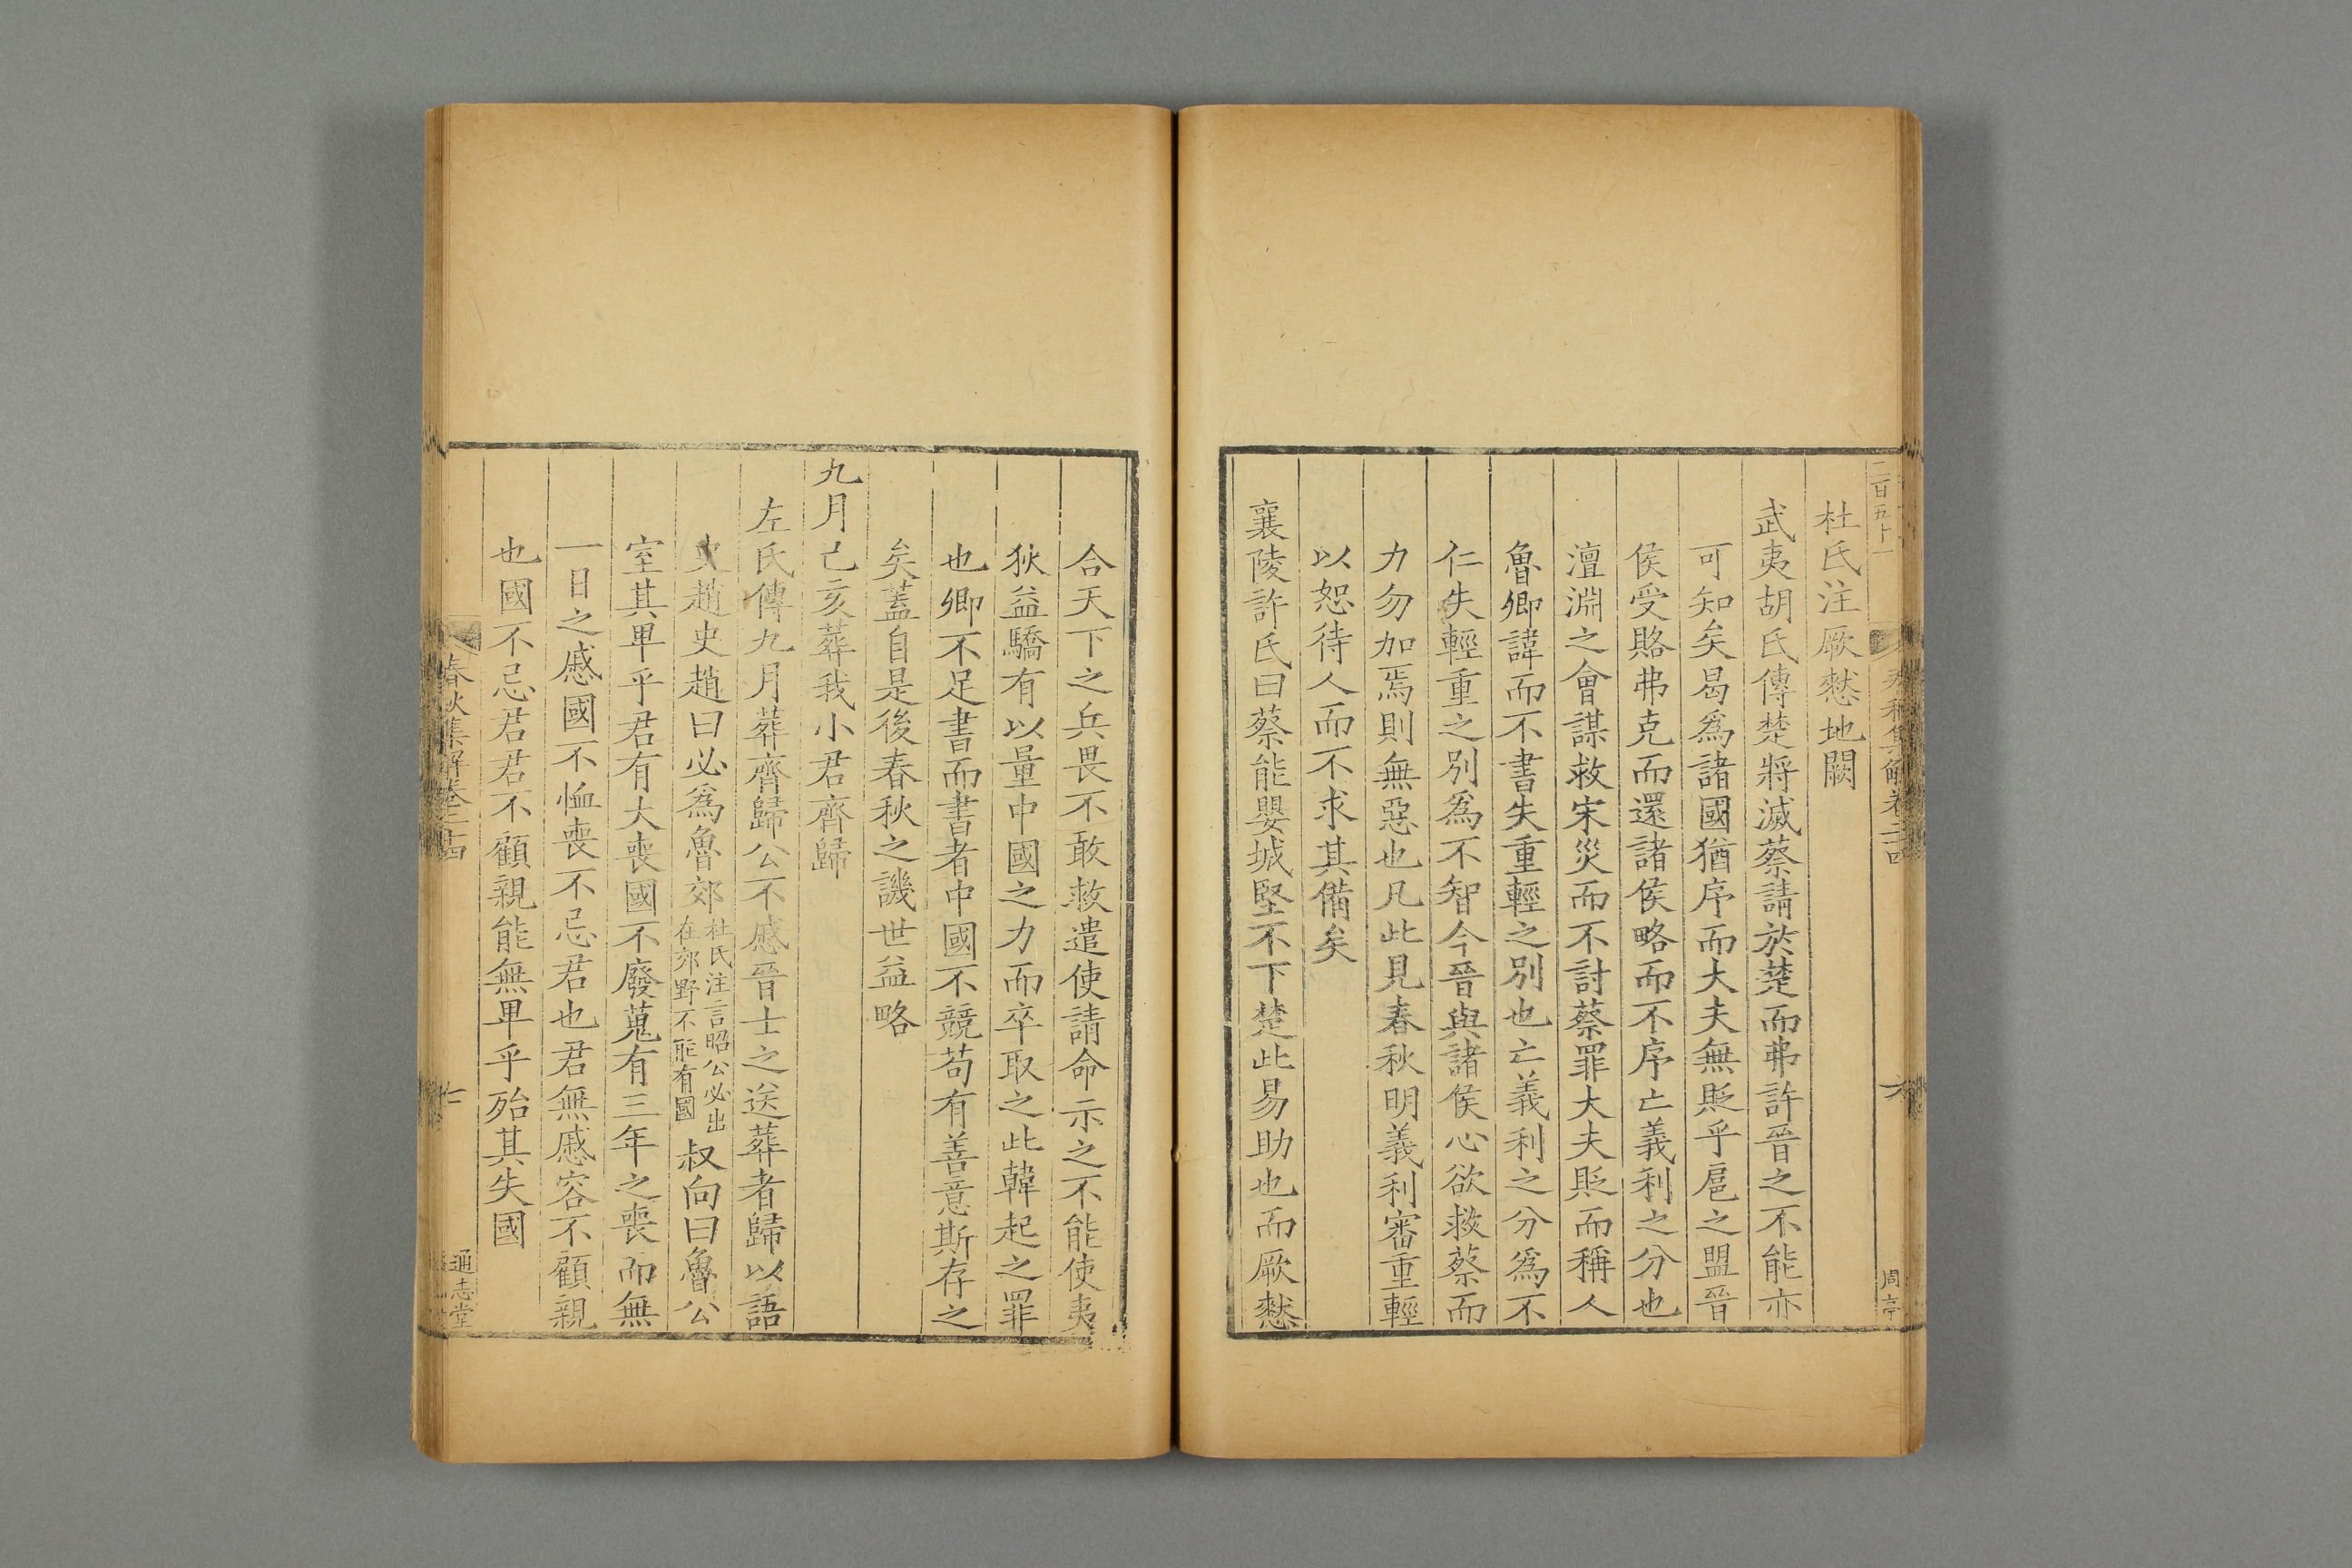 二百五十一
春秋集解卷二十四
六
周亭
杜氏注厥憖地闕
武夷胡氏傳楚將滅蔡請於楚而弗許晉之不能亦
可知矣曷爲諸國猶序而大夫無貶乎扈之盟晉
侯受賂弗克而還諸侯略而不序亡義利之分也
澶淵之會謀救宋災而不討蔡罪大夫貶而稱人
魯卿諱而不書失重輕之別也亡義利之分爲不
仁失輕重之別爲不智今晉與諸侯心欲救蔡而
力勿加焉則無惡也凡此見春秋明義利審重輕
以恕待人而不求其備矣
襄陵許氏曰蔡能嬰城堅不下楚此易助也而厥憖
合天下之兵畏不敢救遣使請命示之不能使夷
狄益驕有以量中國之力而卒取之此韓起之罪
也卿不足書而書者中國不競苟有善意斯存之
矣蓋自是後春秋之譏世益略
九月己亥葬我小君齊歸
左氏傳九月葬齊歸公不慼晉士之送葬者歸以語
史趙史趙曰必爲魯郊杜氏注言昭公必出在郊野不能有國叔向曰魯公
室其卑乎君有大喪國不廢蒐有三年之喪而無
一日之慼國不恤喪不忌君也君無慼容不顧親
也國不忌君君不顧親能無卑乎殆其失國
春秋集解卷二十四
通志堂